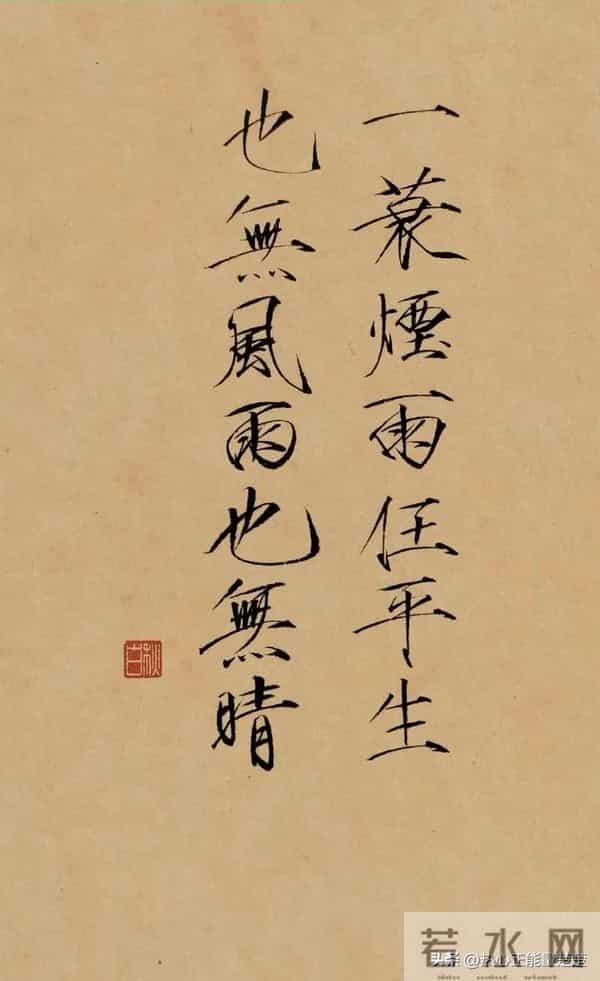 一蓑煙雨任平生
也無風雨也無晴
若水网
头条